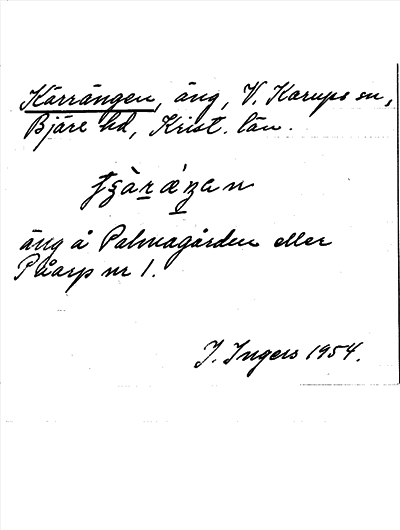 Kärrängen, äng, V. Karups sn,
Bjäre hd, Krist. län.
äng å Palmagården eller
Påarp nr 1.
J. Ingers 1954.